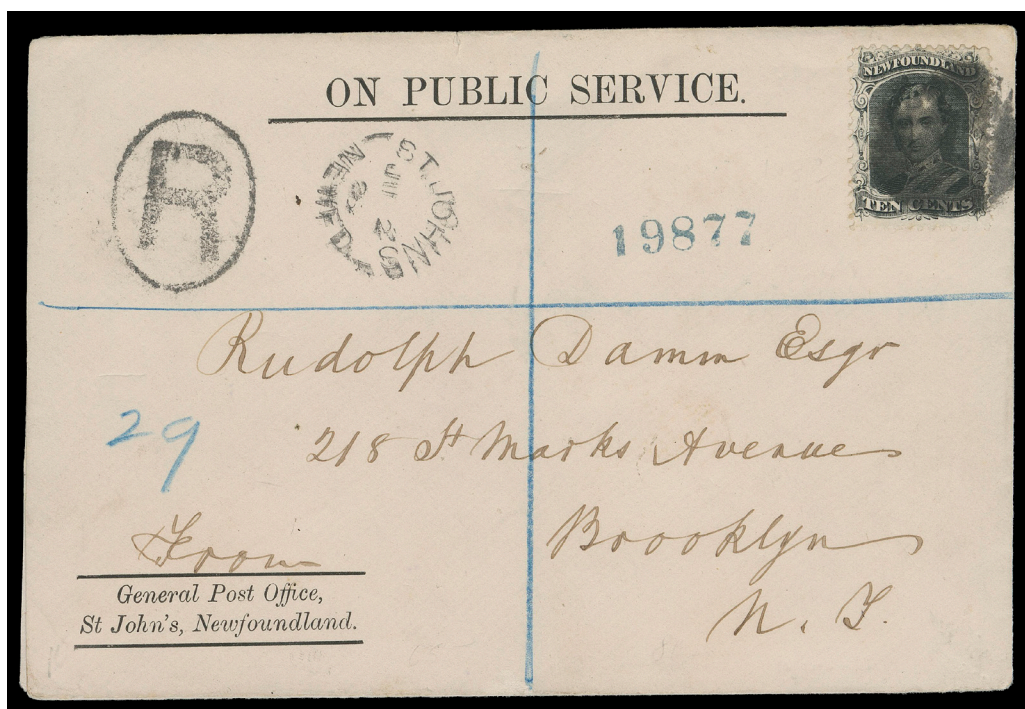 ON PUBLIC SERVICE.
NEWFOUNDLAND
TEN CENTS
R
ST. JOHN'S
NEWF
19877
Rudolph Damm Esqr
29
218 St Marks Avenue
From
Brooklyn
N. Y.
General Post Office,
St John's, Newfoundland.